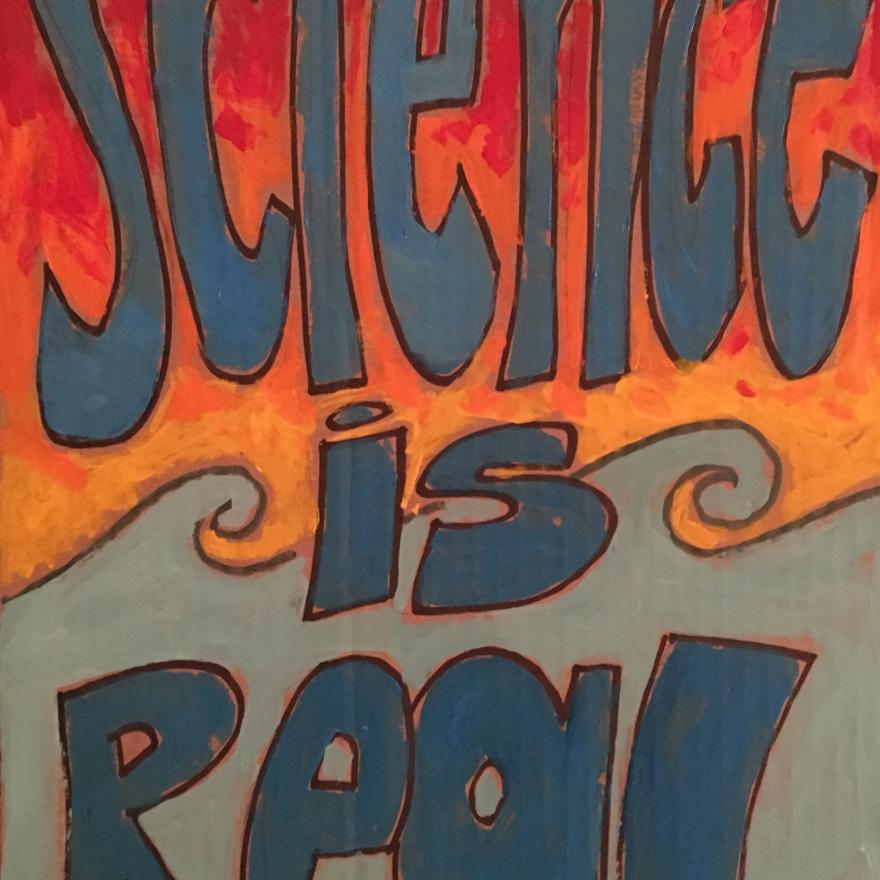 Science
is
Real